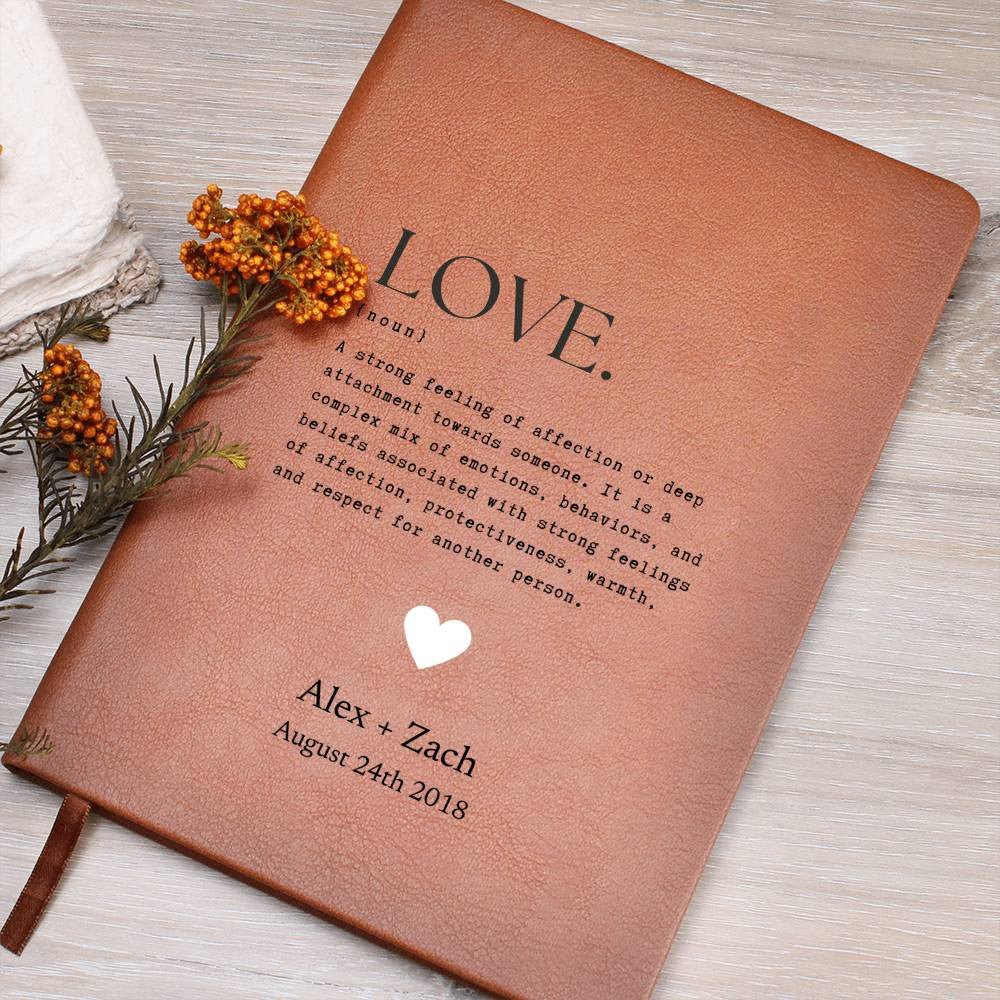 LOVE.
(noun)
A strong feeling of affection or deep
attachment towards someone. It is a
complex mix of emotions, behaviors, and
beliefs associated with strong feelings
of affection, protectiveness, warmth,
and respect for another person.
Alex + Zach
August 24th 2018